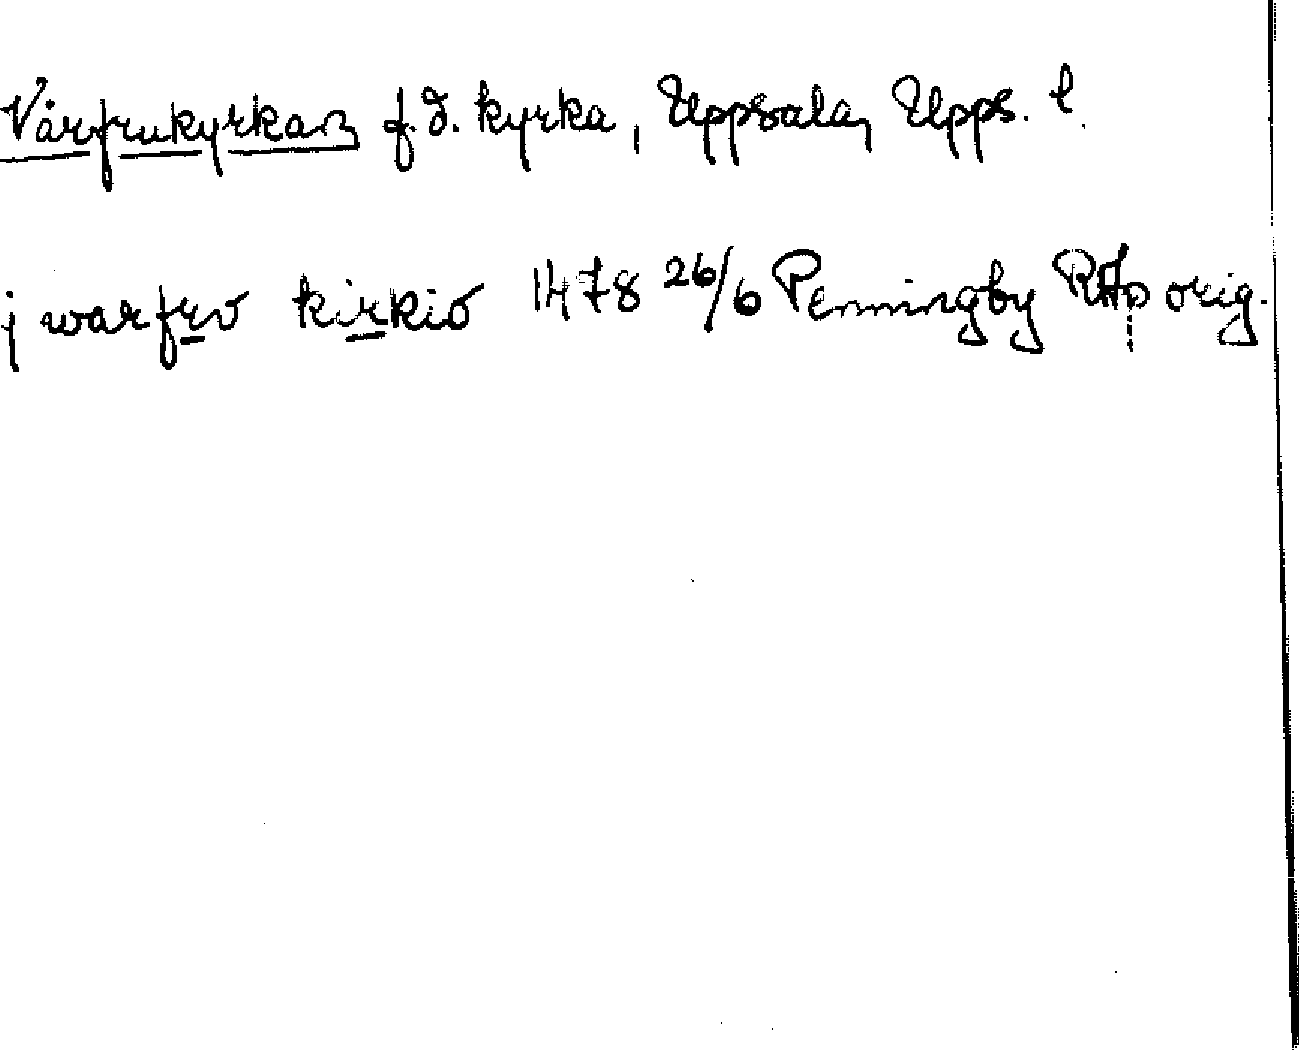 Vårfrukyrkan f.d. kyrka, Uppsala, Upps. l.
j warfrv kirkio 1478 26/6 Penningby RAp orig.